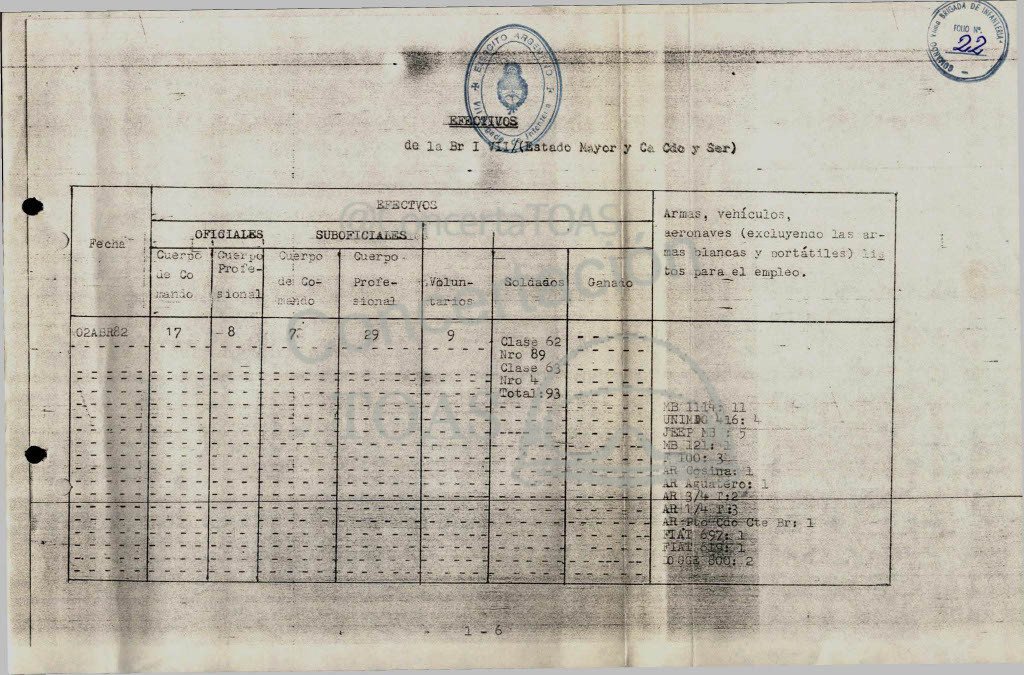 EJERCITO ARGENTINO
BRIGADA DE INFANTERIA
FOLIO Nº
22
EFECTIVOS
de la Br I VIII (Estado Mayor y Ca Cdo y Ser)
@ConcertaTOAS
Concertación
TOAS
EFECTVOS
Armas, vehículos,
aeronaves (excluyendo las ar-
mas blancas y portátiles) lis
tos para el empleo.
Fecha
OFICIALES SUBOFICIALES
Cuerpo de Co mando
Cuerpo Profe- sional
Cuerpo de Co- mando
Cuerpo Profe- sional
Volun- tarios
Soldados
Ganado
02ABR82 17 8 7 29 9
Clase 62
Nro 89
Clase 63
Nro 4
Total:93
MB 1114: 11
UNIMOG 416: 4
JEEP MB : 5
MB 121: 1
F 100: 3
AR Cosina: 1
AR Aguatero: 1
AR 3/4 T:2
AR 1/4 T:3
AR Pto Cdo Cte Br: 1
FIAT 697: 1
FIAT 619: 1
DODGE 800: 2
1 - 6